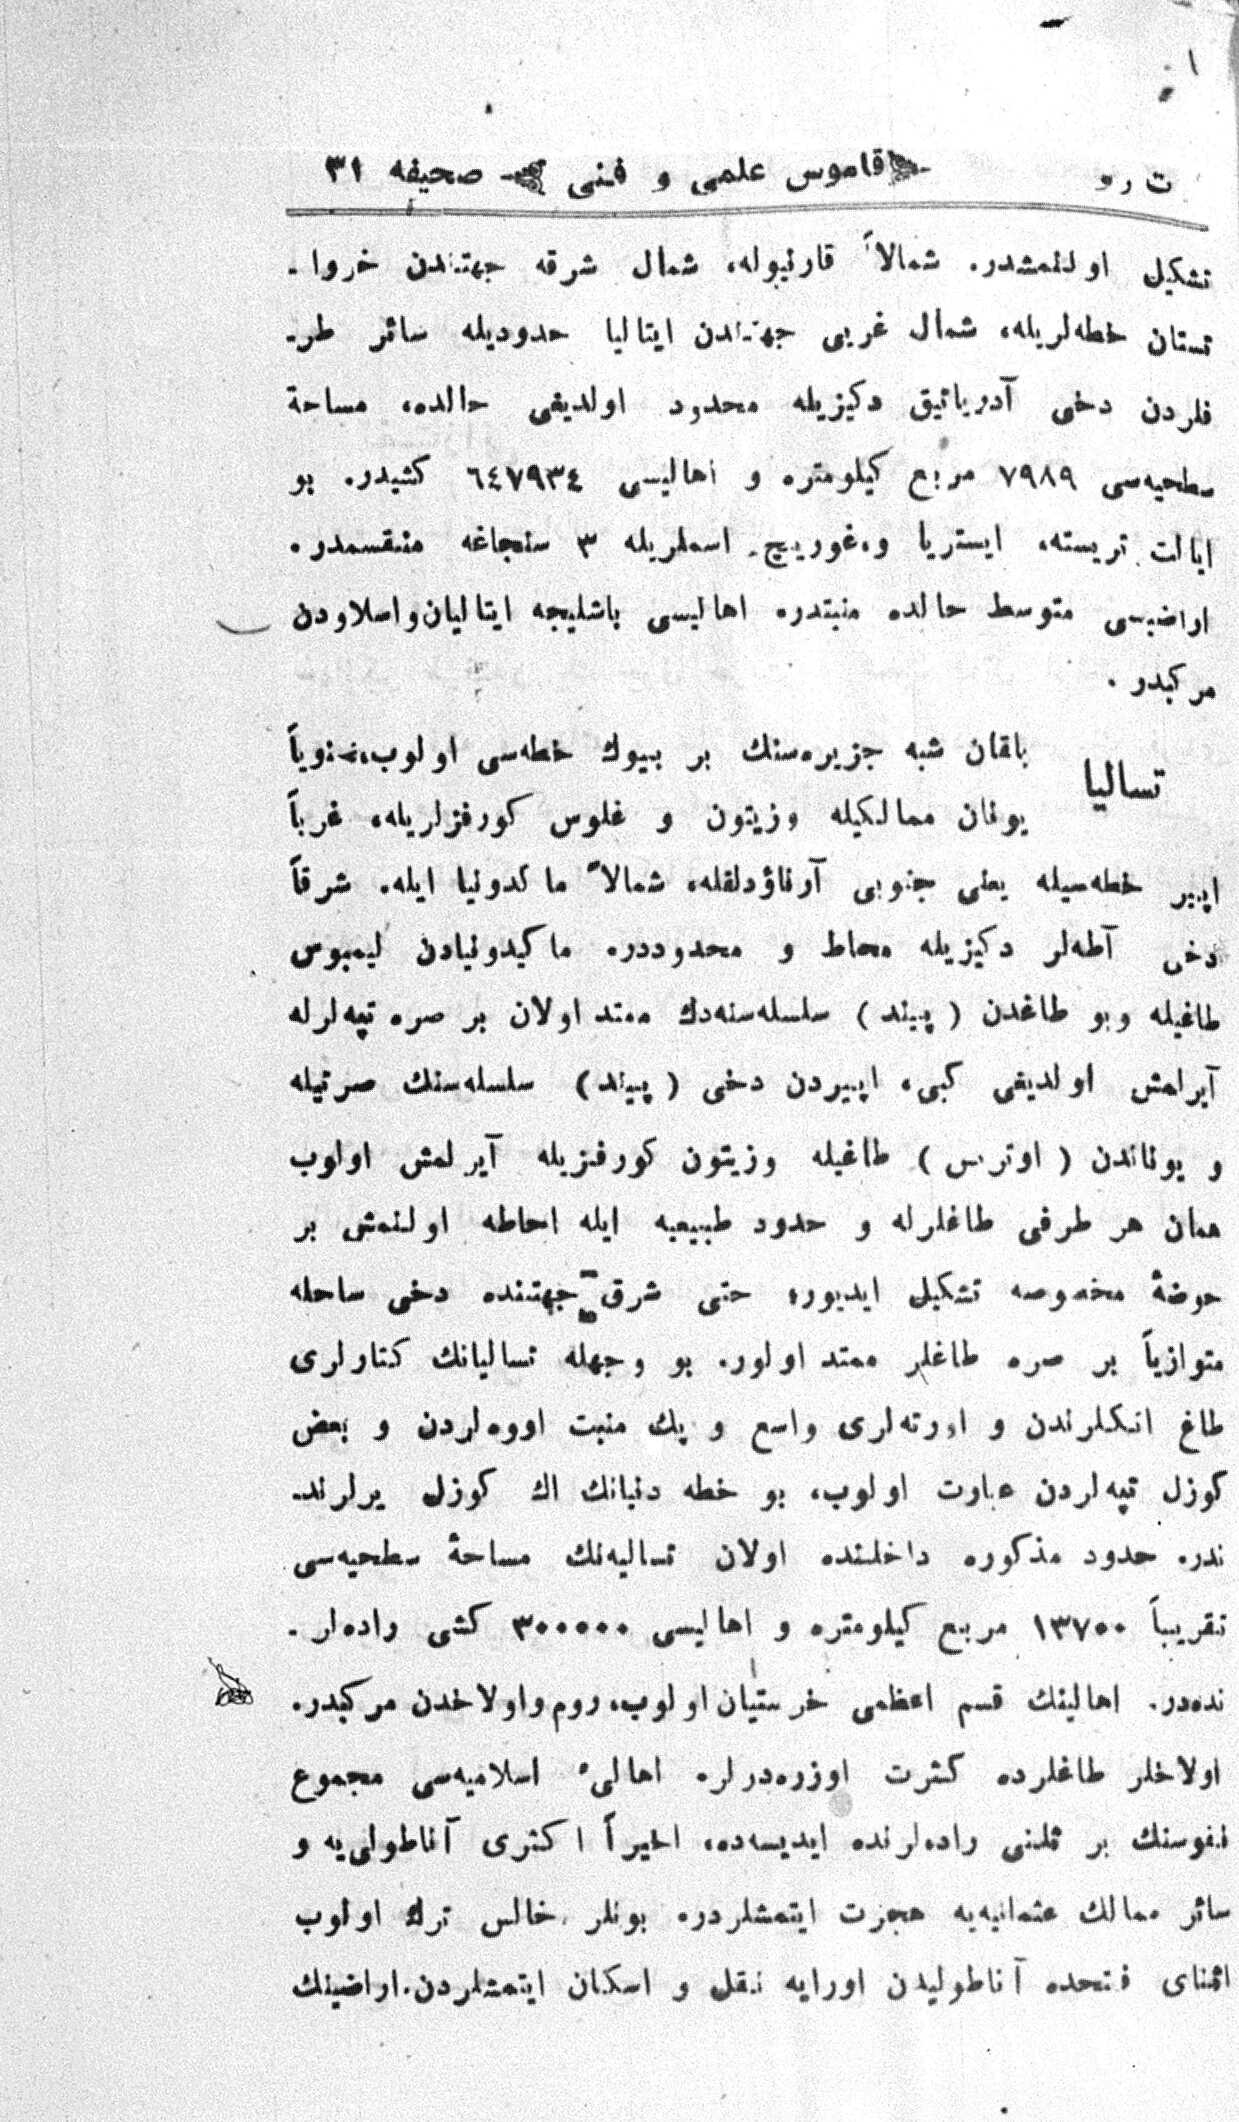 ت ره قاموس علمی و فنی صحیفه ٣١
تشکیل اولنمشدر. شمالاً قارنیوله، شمال شرقه جهتندن خروا-
تستان خطه‌لریله، شمال غربی جهتندن ایتالیا حدودیله سائر طر-
فلردن دخی آدریاتیق دکیزیله محدود اولدیغی حالده، مساحهٔ
سطحیه‌سی ٧٩٨٩ مربع کیلومتره و اهالیسی ٦٤٧٩٣٤ کشیدر. بو
ایالت تریسته، ایستریا و،غوریچ. اسملریله ٣ سنجاغه منقسمدر.
اراضیسی متوسط حالده منبتدر. اهالیسی باشلیجه ایتالیان و اسلاودن
مرکبدر.
تسالیا بالقان شبه جزیره‌سنك بر بیوك خطه‌سی اولوب، جنوباً
یونان ممالکیله و زیتون و غلوس کورفزلریله، غرباً
اپیر خطه‌سیله یعنی جنوبی آرناؤدلقله، شمالاً ماکدونیا ایله. شرقاً
دخی آطه‌لر دکیزیله محاط و محدوددر. ماکیدونیادن لیمبوس
طاغیله و بو طاغدن (پیند) سلسله‌سنه‌دك ممتد اولان بر صره تپه‌لرله
آیرلمش اولدیغی کبی، اپیردن دخی (پیند) سلسله‌سنك صرتیله
و یوناندن (اوتریس) طاغیله و زیتون کورفزیله آیرلمش اولوب
همان هر طرفی طاغلرله و حدود طبیعیه ایله احاطه اولنمش بر
حوضهٔ مخصوصه تشکیل ایدیور؛ حتی شرق جهتنده دخی ساحله
متوازیاً بر صره طاغلر ممتد اولور. بو وجهله تسالیانك کنارلری
طاغ اتکلرندن و اورته‌لری واسع و پك منبت اووه‌لردن و بعض
کوزل تپه‌لردن عبارت اولوب، بو خطه دنیانك اك کوزل یرلرند-
ندر. حدود مذکوره داخلنده اولان تسالیه‌نك مساحهٔ سطحیه‌سی
تقریباً ١٣٧٠٠ مربع کیلومتره و اهالیسی ٣٠٠٠٠٠ کشی راده‌لر-
نده‌در. اهالینك قسم اعظمی خرستیان اولوب، روم و اولاخدن مرکبدر.
اولاخلر طاغلرده کثرت اوزره‌درلر. اهالیٔ اسلامیه‌سی مجموع
نفوسنك بر ثلثی راده‌لرنده ایدیسه‌ده، اخیراً اکثری آناطولی‌یه و
سائر ممالك عثمانیه‌یه هجرت ایتمشلردر. بونلر خالس ترك اولوب
اثنای فتحده آناطولیدن اورایه نقل و اسکان ایتمشلردن. اراضینك